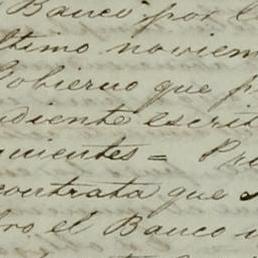 Banco por
ltimo noviem
Gobierno que p
diente escrit
guientes = Pr
contrata que
ro el Banco